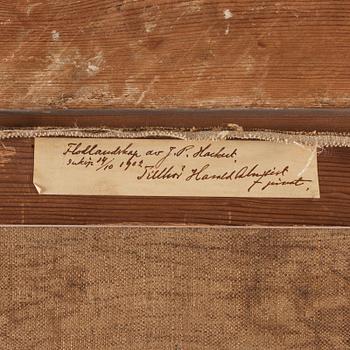 Flodlandskap av J. P. Hackert
Inköp. 14/10 1902
Tillhör Harald Almqvist
privat.